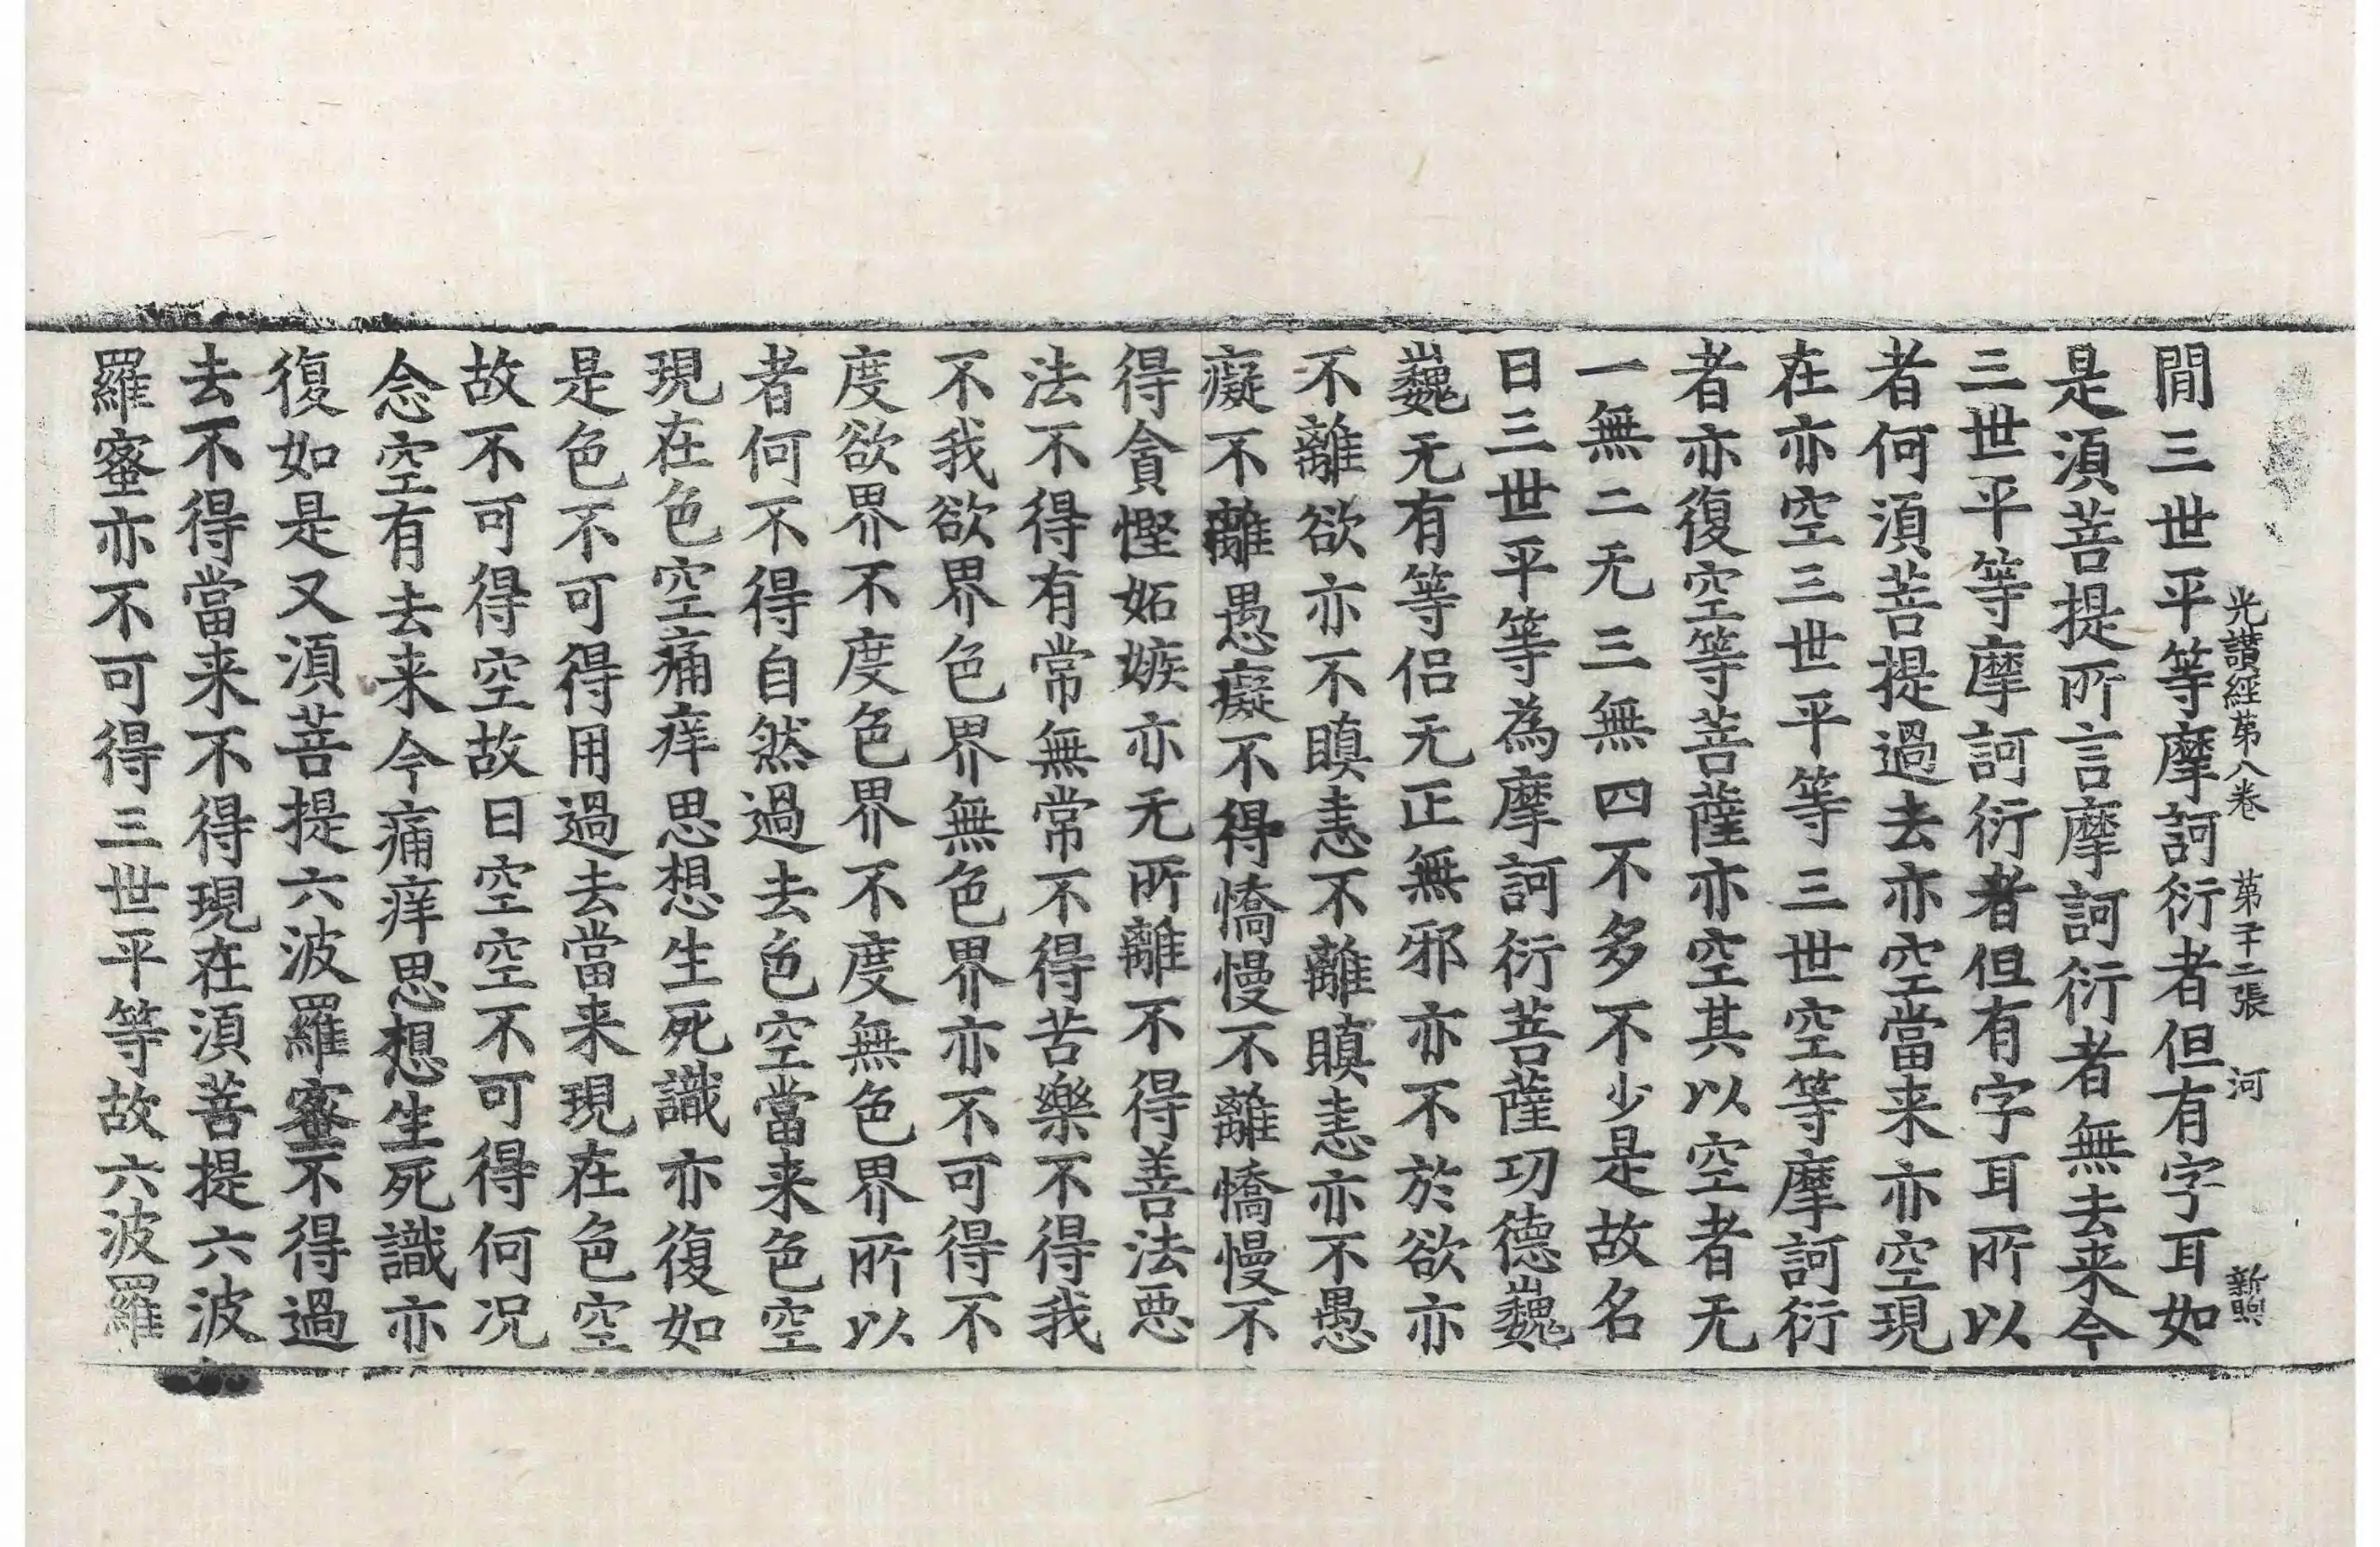 光讃經苐八卷 苐子二張 河 新㫤
閒三世平等摩訶衍者但有字耳如
是湏菩提所言摩訶衍者無去来今
三世平等摩訶衍者但有字耳所以
者何湏菩提過去亦空當来亦空現
在亦空三世平等三世空等摩訶衍
者亦復空等菩薩亦空其以空者无
一無二无三無四不多不少是故名
曰三世平等為摩訶衍菩薩功德巍
巍无有等侣无正無邪亦不於欲亦
不離欲亦不瞋恚不離瞋恚亦不愚
癡不離愚癡不得憍慢不離憍慢不
得貪慳妬嫉亦无所離不得善法惡
法不得有常無常不得苦樂不得我
不我欲界色界無色界亦不可得不
度欲界不度色界不度無色界所以
者何不得自然過去色空當来色空
現在色空痛痒思想生死識亦復如
是色不可得用過去當来現在色空
故不可得空故曰空空不可得何况
念空有去来今痛痒思想生死識亦
復如是又湏菩提六波羅蜜不得過
去不得當来不得現在湏菩提六波
羅蜜亦不可得三世平等故六波羅